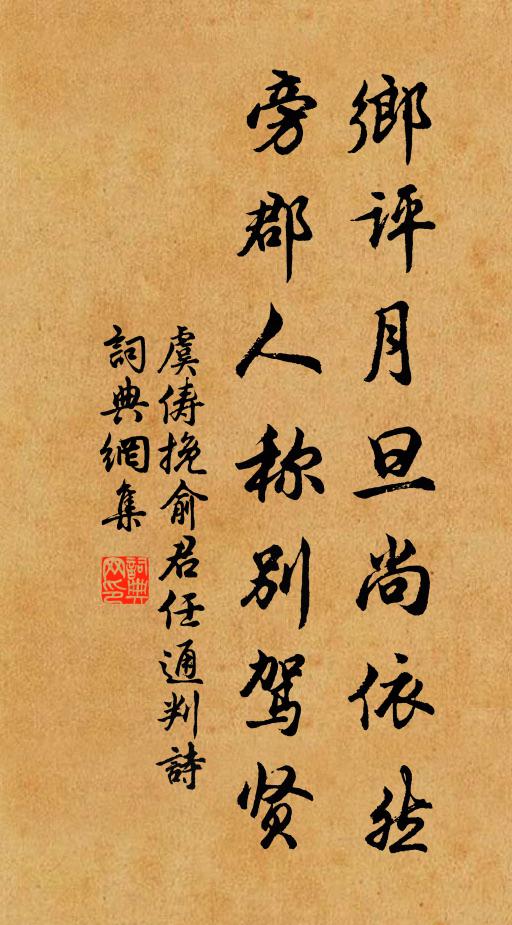 鄉評月旦尚依然
旁郡人称別駕贤
虞俦挽俞君任通判詩
詞典網集
詞典网印